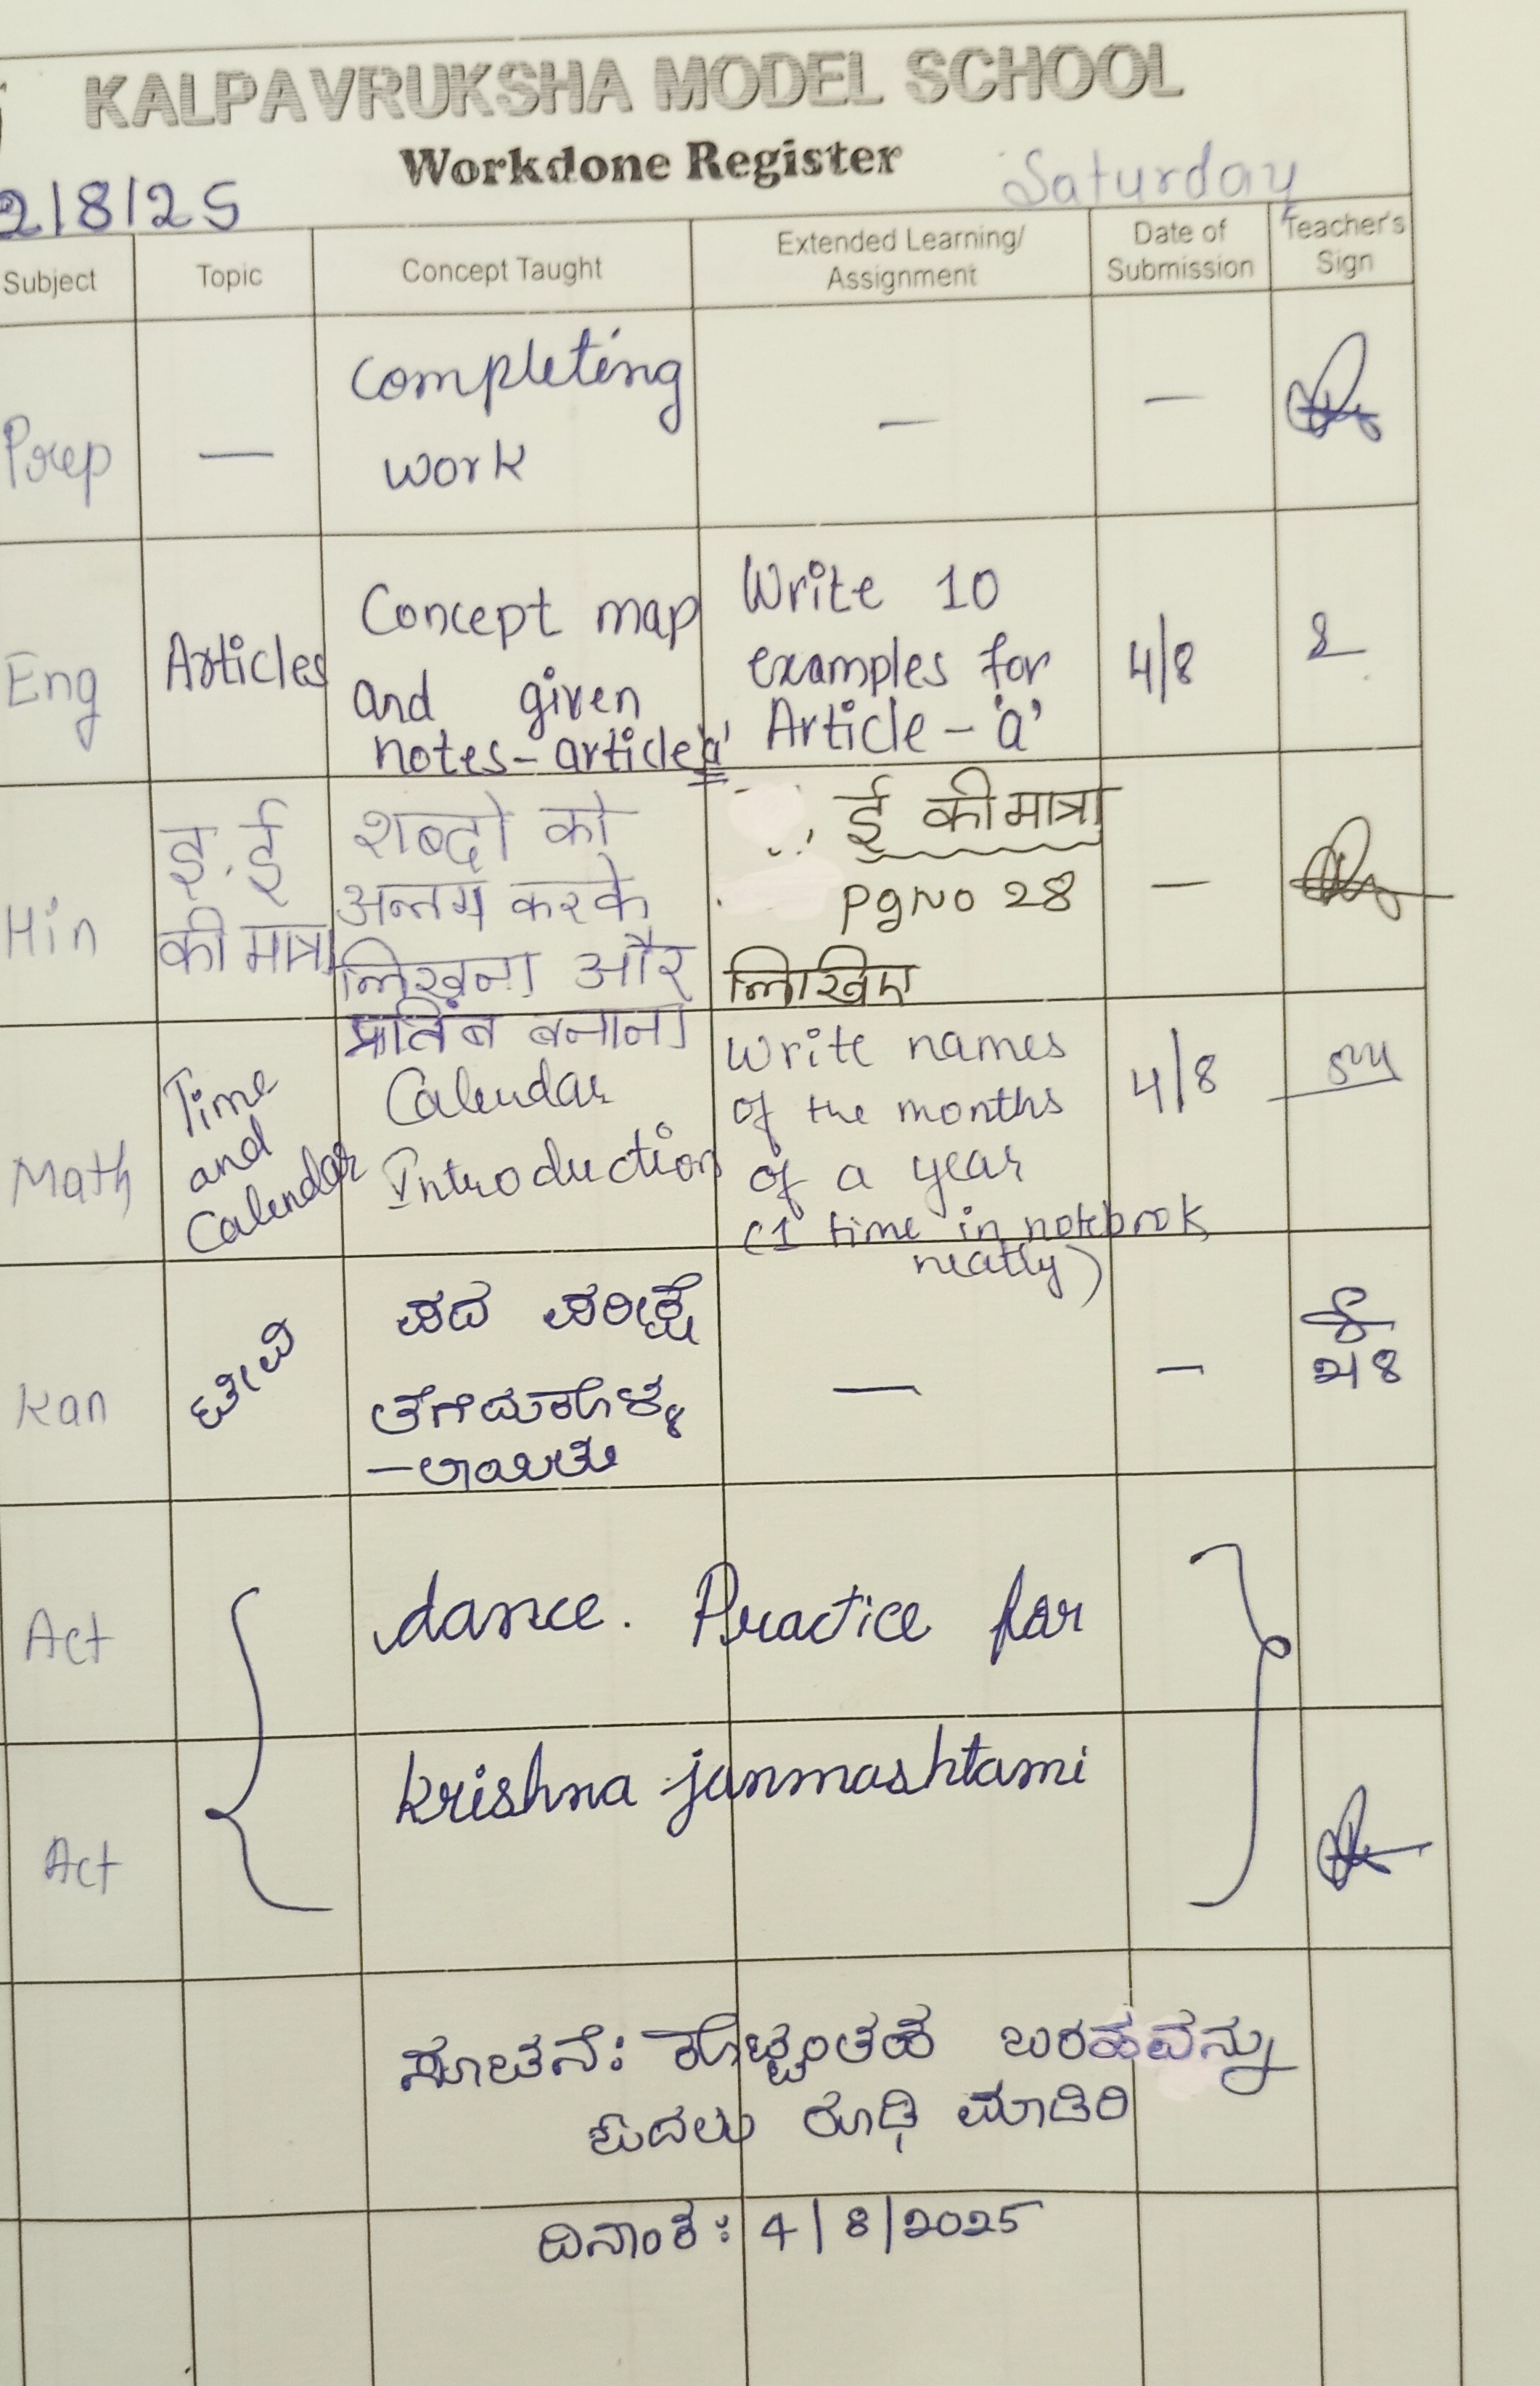 KALPAVRUKSHA MODEL SCHOOL
Workdone Register
2/8/25 Saturday
Subject Topic Concept Taught Extended Learning/ Assignment Date of Submission Teacher's Sign
Prep — completing — —
work
Eng Articles Concept map
and given
notes - article 'a'
Write 10
examples for
Article - 'a'
4/8
Hin इ. ई
की मात्रा
शब्दों को
अलग करके
लिखना और
बनाना
ई की मात्रा
pg No 28
लिखिए
—
Math Time
and
Calendar
Calendar
Introduction
Write names
of the months
of a year
(1 time in notebook
neatly)
4/8
Kan
ಪದ ಪರೀಕ್ಷೆ
ತೆಗೆದುಕೊಳ್ಳ
-ಲಾಯಿತು
— —
Act dance. Practice for
Act krishna janmashtami
ಸೂಚನೆ: ಕೊಟ್ಟಂತಹ ಬರಹವನ್ನು
ಓದಲು ರೂಢಿ ಮಾಡಿರಿ
ದಿನಾಂಕ: 4/8/2025